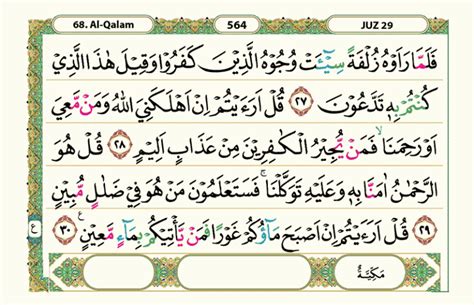 68. Al-Qalam 564 JUZ 29
فَلَمَّا رَاَوْهُ زُلْفَةً سِيْۤـَٔتْ وُجُوْهُ الَّذِيْنَ كَفَرُوْا وَقِيْلَ هٰذَا الَّذِيْ
كُنْتُمْ بِهٖ تَدَّعُوْنَ ٢٧ قُلْ اَرَءَيْتُمْ اِنْ اَهْلَكَنِيَ اللّٰهُ وَمَنْ مَّعِيَ
اَوْ رَحِمَنَاۙ فَمَنْ يُّجِيْرُ الْكٰفِرِيْنَ مِنْ عَذَابٍ اَلِيْمٍ ٢٨ قُلْ هُوَ
الرَّحْمٰنُ اٰمَنَّا بِهٖ وَعَلَيْهِ تَوَكَّلْنَاۚ فَسَتَعْلَمُوْنَ مَنْ هُوَ فِيْ ضَلٰلٍ مُّبِيْنٍ
٢٩ قُلْ اَرَءَيْتُمْ اِنْ اَصْبَحَ مَاۤؤُكُمْ غَوْرًا فَمَنْ يَّأْتِيْكُمْ بِمَاۤءٍ مَّعِيْنٍ ࣖ ٣٠
ع
مَكِيَّةٌ